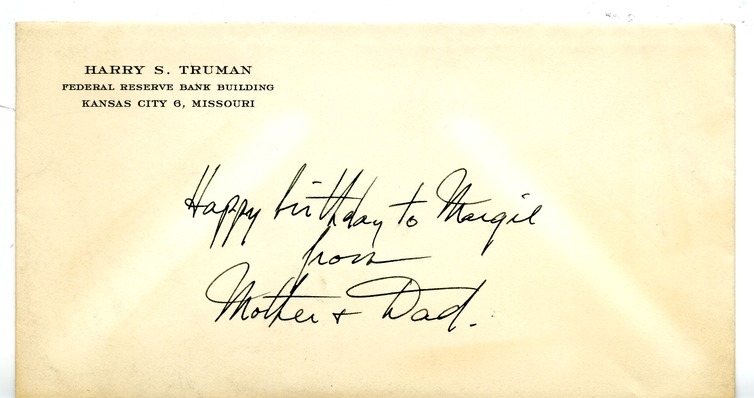 HARRY S. TRUMAN
FEDERAL RESERVE BANK BUILDING
KANSAS CITY 6, MISSOURI
Happy birthday to Margie
from
Mother & Dad.